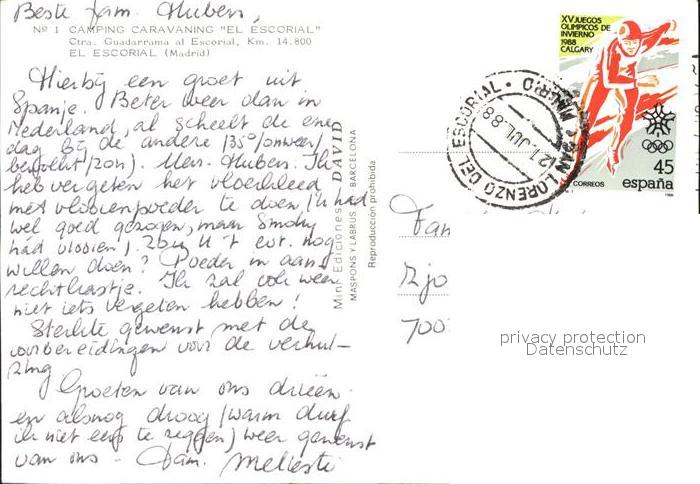 Beste fam. Huben,
Nº 1 CAMPING CARAVANING "EL ESCORIAL"
Ctra. Guadarrama al Escorial, Km. 14.800
EL ESCORIAL (Madrid)
Hierbij een groet uit
Spanje. Beter weer dan in
Nederland, al scheelt de ene
dag bij de andere (35°/onweer/
bewolkt/20n). Mev. Huben. Ik
heb vergeten het vloerkleed
met vlooienpoeder te doen (ik had
wel goed gezogen, maar Smoky
had vlooien). Zou U 't evt. nog
willen doen? Poeder in aan-
rechtkastje. Ik zal ook weer
niet iets vergeten hebben!
Sterkte gewenst met de
voorbereidingen voor de verhui-
zing
Groeten van ons drieën
en alsnog droog (warm durf
ik niet eens te zeggen) weer gewenst
van ons - Fam.
Mini Ediciones DAVID
MASPONS Y LABRUS - BARCELONA
Reproducción prohibida
SAN LORENZO DEL ESCORIAL · MADRID
21 JUL. 88
XV JUEGOS
OLIMPICOS DE
INVIERNO
1988
CALGARY
45
CORREOS
españa
1988
Fam
Rijo
700
privacy protection
Datenschutz